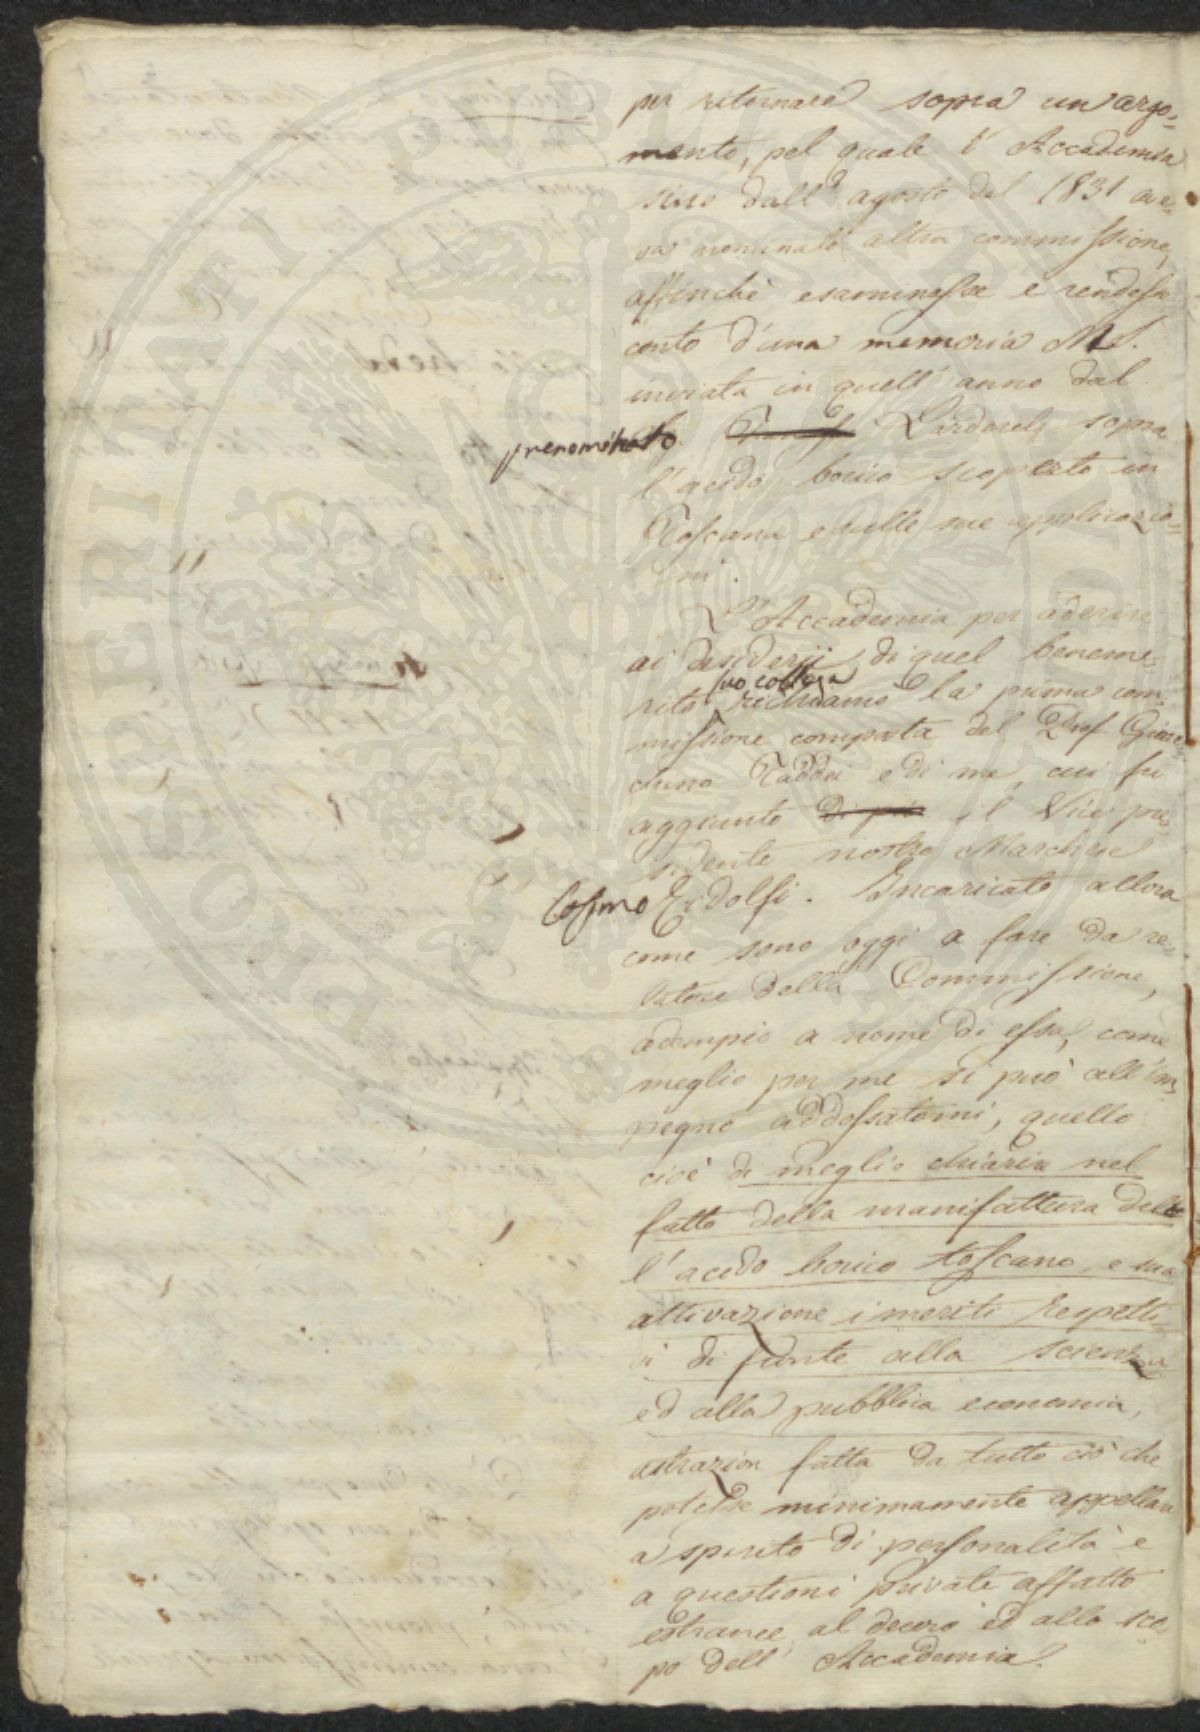 per ritornare sopra un argo=
mento, pel quale l'Accademia
sino dall' agosto del 1831 ave=
va nominato altra commissione,
affinchè esaminasse e rendesse
conto d'una memoria MS.
inviata in quell' anno dal
prenominato Larderel sopra
l'acido borico scoperto in
Toscana e sulle sue applicazio=
ni.
L'Accademia per aderire
ai desiderii di quel beneme=
suo collega
rito richiamò la prima com=
missione composta del Prof. Gioac=
chino Taddei e di me, cui fu
aggiunto di più il Vice pre=
sidente nostro Marchese
Cosimo Ridolfi. Incaricato allora
come sono oggi a fare da re=
latore della Commissione,
adempio a nome di essa, come
meglio per me si può all'im=
pegno addossatomi, quello
cioè di meglio chiarire nel
fatto della manifattura del=
l'acido borico toscano, e sua
attivazione i meriti respetti=
vi di fronte alla scienza
ed alla pubblica economia,
astrazion fatta da tutto ciò che
potesse minimamente appellare
a spirito di personalità e
a questioni private affatto
estranee al decoro ed allo sco=
po dell' Accademia.
PROSPERITATI PVBLICAE